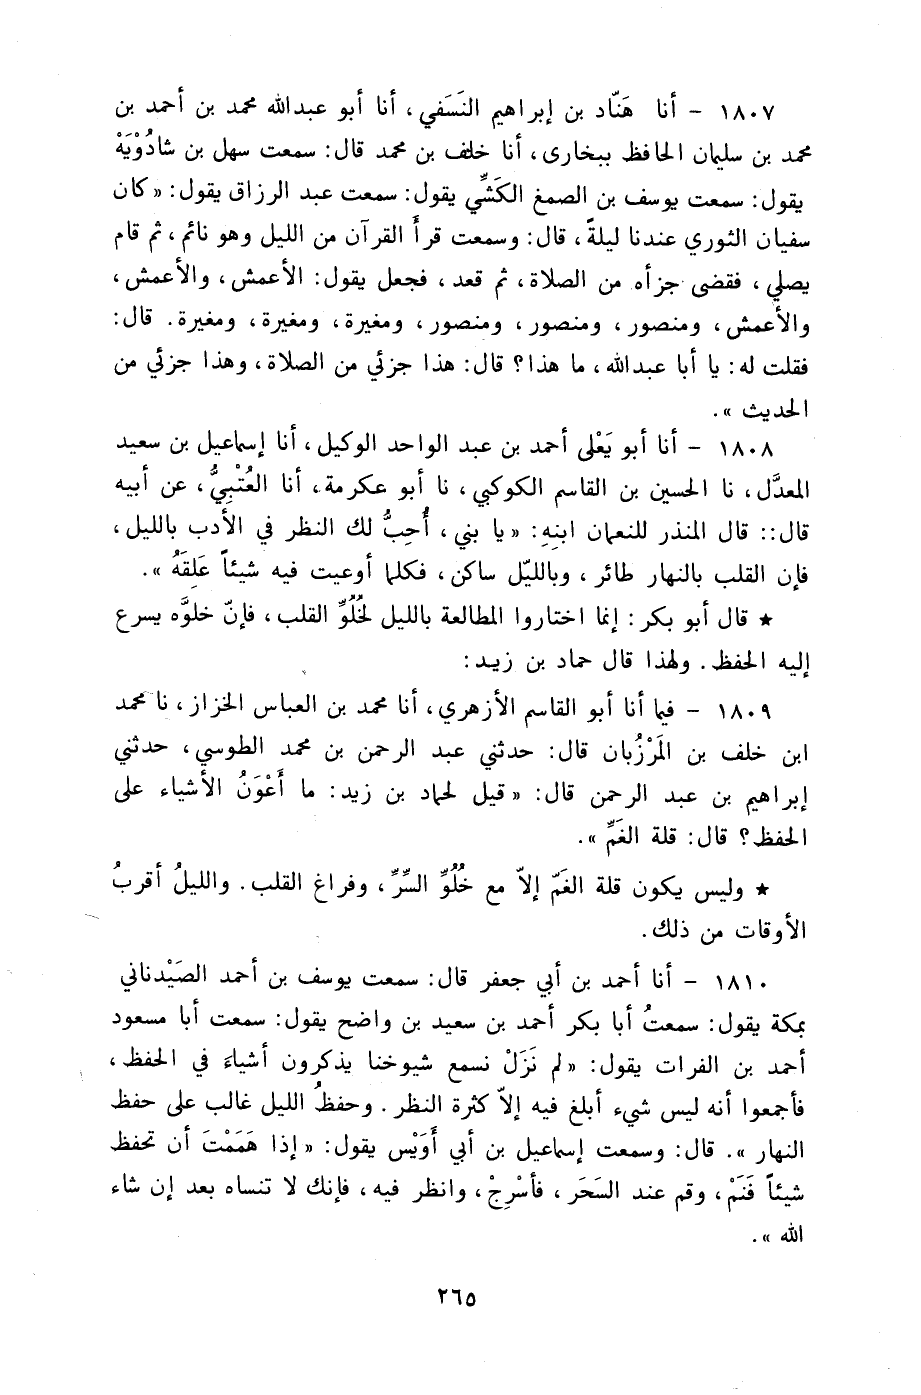 ١٨٠٧ - أنا هَنّاد بن إبراهيم النَسَفي، أنا أبو عبدالله محمد بن أحمد بن
محمد بن سليمان الحافظ ببخارى، أنا خلف بن محمد قال: سمعت سهل بن شاذُوْيَهْ
يقول: سمعت يوسف بن الصمغ الكَشِّي يقول: سمعت عبد الرزاق يقول: «كان
سفيان الثوري عندنا ليلةً، قال: وسمعت قرأ القرآن من الليل وهو نائم، ثم قام
يصلي، فقضى جزأه من الصلاة، ثم قعد، فجعل يقول: الأعمش، والأعمش،
والأعمش، ومنصور، ومنصور، ومنصور، ومغيرة، ومغيرة، ومغيرة. قال:
فقلت له: يا أبا عبدالله، ما هذا؟ قال: هذا جزئي من الصلاة، وهذا جزئي من
الحديث».
١٨٠٨ - أنا أبو يَعْلى أحمد بن عبد الواحد الوكيل، أنا إسماعيل بن سعيد
المعدَّل، نا الحسين بن القاسم الكوكبي، نا أبو عكرمة، أنا العُتْبِيُّ، عن أبيه
قال:: قال المنذر للنعمان ابنِهِ: «يا بني، أُحِبُّ لك النظر في الأدب بالليل،
فإن القلب بالنهار طائر، وبالليّل ساكن، فكلما أوعيت فيه شيئاً عَلِقَهُ».
★ قال أبو بكر: إنما اختاروا المطالعة بالليل لخُلُوِّ القلب، فإنّ خلوَّه يسرع
إليه الحفظ. ولهذا قال حماد بن زيد:
١٨٠٩ - فيما أنا أبو القاسم الأزهري، أنا محمد بن العباس الخزاز، نا محمد
ابن خلف بن المَرْزُبان قال: حدثني عبد الرحمن بن محمد الطوسي، حدثني
إبراهيم بن عبد الرحمن قال: «قيل لحماد بن زيد: ما أَعْوَنُ الأشياء على
الحفظ؟ قال: قلة الغَمِّ».
★ وليس يكون قلة الغَمّ إلاّ مع خُلُوِّ السِّرِّ، وفراغ القلب. والليلُ أقربُ
الأوقات من ذلك.
١٨١٠ - أنا أحمد بن أبي جعفر قال: سمعت يوسف بن أحمد الصَيْدناني
بمكة يقول: سمعتُ أبا بكر أحمد بن سعيد بن واضح يقول: سمعت أبا مسعود
أحمد بن الفرات يقول: «لم نَزَلْ نسمع شيوخنا يذكرون أشياءً في الحفظ،
فأجمعوا أنه ليس شيء أبلغ فيه إلاّ كثرة النظر. وحفظُ الليل غالب على حفظ
النهار». قال: وسمعت إسماعيل بن أبي أُوَيْس يقول: «إذا هَمَمْتَ أن تحفظ
شيئاً فَنَمْ، وقم عند السَحَر، فأسْرِجْ، وانظر فيه، فإنك لا تنساه بعد إن شاء
الله».
٢٦٥